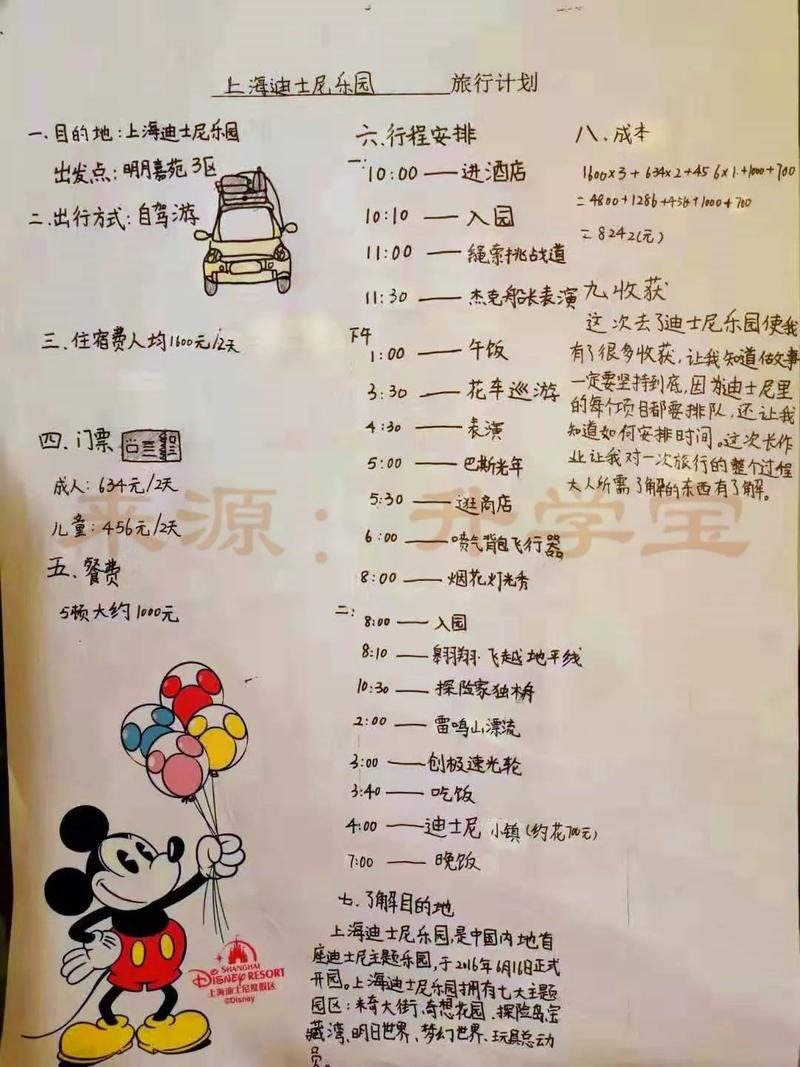 上海迪士尼乐园 旅行计划
一、目的地：上海迪士尼乐园
出发点：明月嘉苑3区
二、出行方式：自驾游
三、住宿费人均1600元/2天
四、门票
成人：634元/2天
儿童：456元/2天
五、餐费
5顿大约1000元
六、行程安排
一：
10:00——进酒店
10:10——入园
11:00——绳索挑战道
11:30——杰克船长表演
下午
1:00——午饭
3:30——花车巡游
4:30——表演
5:00——巴斯光年
5:30——逛商店
6:00——喷气背包飞行器
8:00——烟花灯光秀
二：
8:00——入园
8:10——翱翔·飞越地平线
10:30——探险家独木舟
2:00——雷鸣山漂流
3:00——创极速光轮
3:40——吃饭
4:00——迪士尼小镇（约花700元）
7:00——晚饭
七、了解目的地
上海迪士尼乐园,是中国内地首
座迪士尼主题乐园,于2016年6月16日正式
开园。上海迪士尼乐园拥有七大主题
园区：米奇大街、奇想花园、探险岛、宝
藏湾、明日世界、梦幻世界、玩具总动
员。
八、成本
1600×3+634×2+456×1+1000+700
=4800+1286+456+1000+700
=8242(元)
九收获
这次去了迪士尼乐园使我
有了很多收获,让我知道做故事
一定要坚持到底,因为迪士尼里
的每个项目都要排队,还让我
知道如何安排时间。这次长作
业让我对一次旅行的整个过程
大人所需了解的东西有了解。
来源：升学宝
SHANGHAI
Disney RESORT
上海迪士尼度假区
©Disney